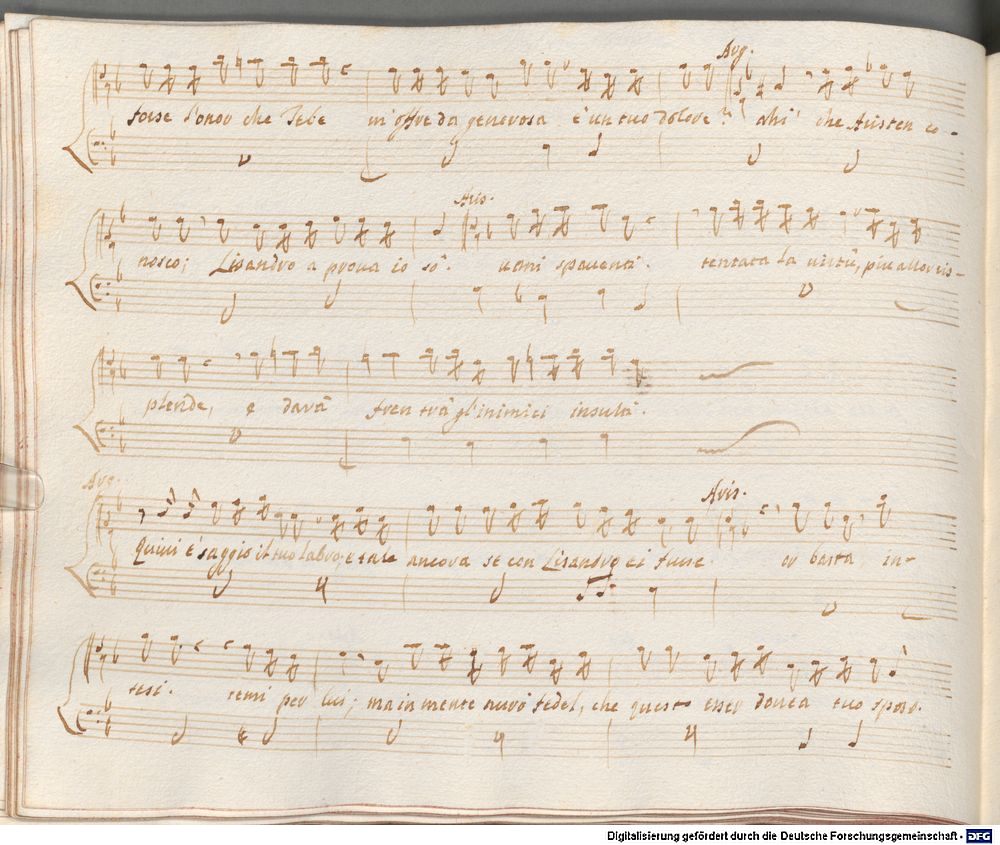 Arg.
forse l'onor che Tebe in offre da generosa è un tuo dolore? ahi' che Aristen co-
Aris.
nosco; Lisandro a prova io sò. v'ami spaventa. tentata la virtù, piu allor ris-
plende, e darà fren trà gl'inimici insulti.
Arg.
Aris.
Quivi è saggio il tuo labro, e tale ancora se con Lisandro ei fusse. or basta in-
tesi. temi per lui; ma in mente nuro fedel, che questo esser dovea tuo sposo.
Digitalisierung gefördert durch die Deutsche Forschungsgemeinschaft - DFG